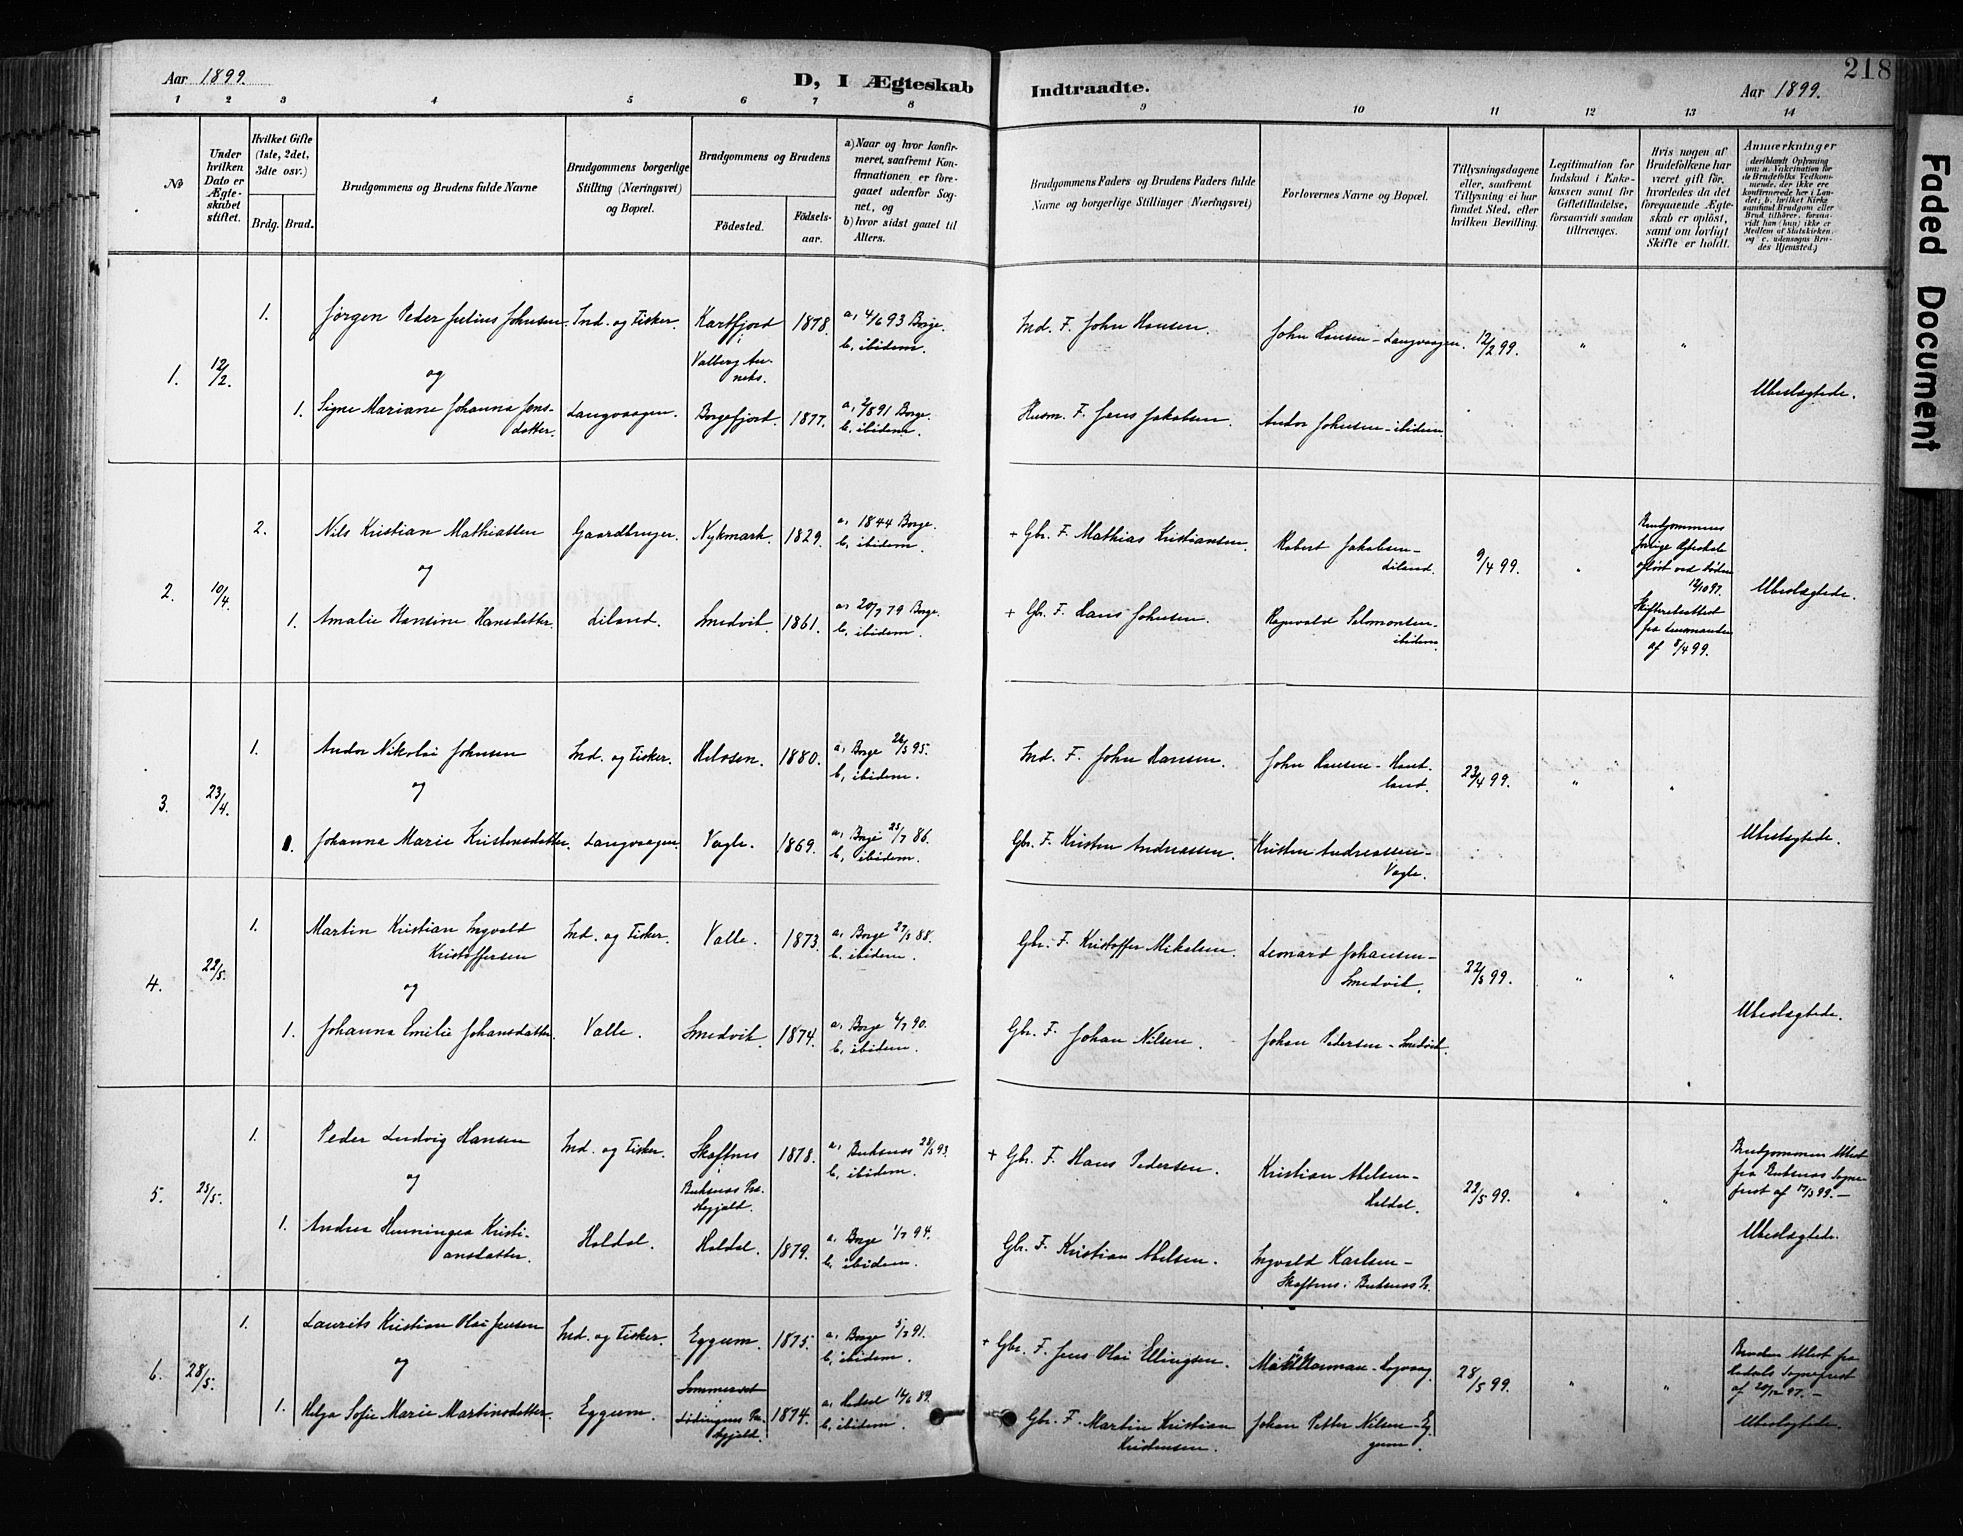 218
Aar 1899.
D, I Ægteskab Indtraadte.
Aar 1899.
1 2 3 4 5 6 7 8 9 10 11 12 13 14
No
Under hvilken Dato er Ægteskabet stiftet.
Hvilket Gifte (1ste, 2det, 3die osv.)
Brdg. Brud.
Brudgommens og Brudens fulde Navne
Brudgommens borgerlige Stilling (Næringsvei) og Bopæl.
Brudgommens og Brudens
Fødested.
Fødsels-aar.
a) Naar og hvor konfirmeret, saafremt Konfirmationen er foregaaet udenfor Sognet, og
b) hvor sidst gaaet til Alters.
Brudgommens Faders og Brudens Faders fulde Navne og borgerlige Stillinger (Næringsvei)
Forlovernes Navne og Bopæl.
Tillysningsdagene eller, saafremt Tillysning ei har fundet Sted, efter hvilken Bevilling.
Legitimation for Indskud i Enkekassen samt for Giftetilladelse, forsaavidt saadan tiltrænges.
Hvis nogen af Brudefolkene har været gift før, hvorledes da det foregaaende Ægteskab er opløst, samt om lovligt Skifte er holdt.
Anmærkninger
(deriblandt Oplysning om: a. Vakcination for de Brudefolks Vedkommende, der ikke ere konfirmerede her i Landet; b. hvilket Kirkesamfund Brudgom eller Brud tilhører, forsaavidt han (hun) ikke er Medlem af Statskirken, og c. udensogns Brudes Hjemsted.)
1. 12/2. 1. Jørgen Peder Julius Johnsen. Ind. og Fisker. Kartfjord i Valberg Anneks. 1878. a, 4/6 93 Borge. b, ibidem. Ind. F. John Hansen. John Hansen - Langvaagen. 12/2 99. " "
og
1. Signe Mariane Johanna Jensdatter. Langvaagen. Borgefjord. 1877. a, 2/8 91 Borge. b, ibidem. Husm. F. Jens Jakobsen. Andor Johnsen - ibidem. Ubeslægtede.
2. 10/4. 2. Nils Kristian Mathiassen Gaardbruger. Nykmark. 1829. a, 1844 Borge. b, ibidem. + Gbr. F. Mathias Kristiansen. Robert Jakobsen - Liland. 9/4 99. " Brudgommens forrige Ægteskab opløst ved Døden 12/10 97. Skifteretsattest fra Lensmanden af 8/4 99.
og
1. Amalie Hansine Hansdatter. Liland. Smedvik. 1861. a, 20/7 79 Borge. b, ibidem. + Gbr. F. Hans Johnsen. Ragnvald Salomonsen - ibidem. Ubeslægtede.
3. 23/4. 1. Andor Nikolai Johnsen Ind. og Fisker. Helosen. 1880. a, Borge 26/5 95. b, ibidem. Ind. F. John Hansen. John Hansen - Haugland. 23/4 99. " "
og
1. Johanna Marie Kristensdatter. Langvaagen. Vagle. 1869. a, Borge 25/7 86. b, ibidem. Gbr. F. Kristen Andreassen. Kristen Andreassen - Vagle. Ubeslægtede.
4. 22/5. 1. Martin Kristian Ingvald Kristoffersen Ind. og Fisker. Valle. 1873. a, Borge 27/5 88. b, ibidem. Gbr. F. Kristoffer Mikelsen. Leonard Johansen - Smedvik. 22/5 99. " "
og
1. Johanna Emilie Johansdatter. Valle. Smedvik. 1874. a, Borge 6/7 90. b, ibidem. Gbr. F. Johan Nilsen. Johan Pedersen - Smedvik. Ubeslægtede.
5. 25/5. 1. Peder Ludvig Hansen Ind. og Fisker. Skaftnes Buksnæs Præstegjæld. 1878. a, Buksnæs 28/5 93. b, ibidem. + Gbr. F. Hans Pedersen. Kristian Abelsen - Holdal. 22/5 99. " " Brudgommens Attest fra Buksnæs Sogneprest af 17/5 99. -
og
1. Andrea Henningea Kristiansdatter. Holdal. Holdal. 1879. a, Borge 1/7 94. b, ibidem. Gbr. F. Kristian Abelsen. Ingvald Karlsen - Skaftnes i Buksnæs P. Ubeslægtede.
6. 28/5. 1. Laurits Kristian Olai Jensen Ind. og Fisker. Eggum. 1875. a, Borge 5/7 91. b, ibidem. + Gbr. F. Jens Olai Ellingsen. 28/5 99. " " Brudens Attest fra Sogneprest af 20/12 97. -
og
1. Helga Sofie Marie Martinsdatter. Eggum. Sommerset Lødingens Præstegjæld. 1874. a, 14/6 89. b, ibidem. Gbr. F. Martin Kristian Kristensen. Johan Petter Nilsen - Eggum. Ubeslægtede.
Faded Document